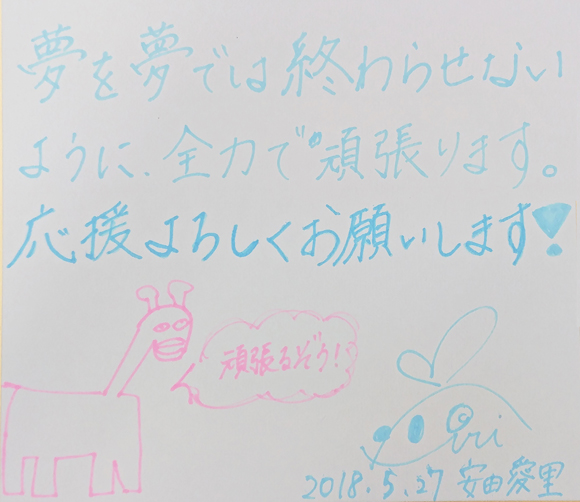 夢を夢では終わらせない
ように、全力で頑張ります。
応援よろしくお願いします!
頑張るぞう!
Airi
2018.5.27 安田愛里